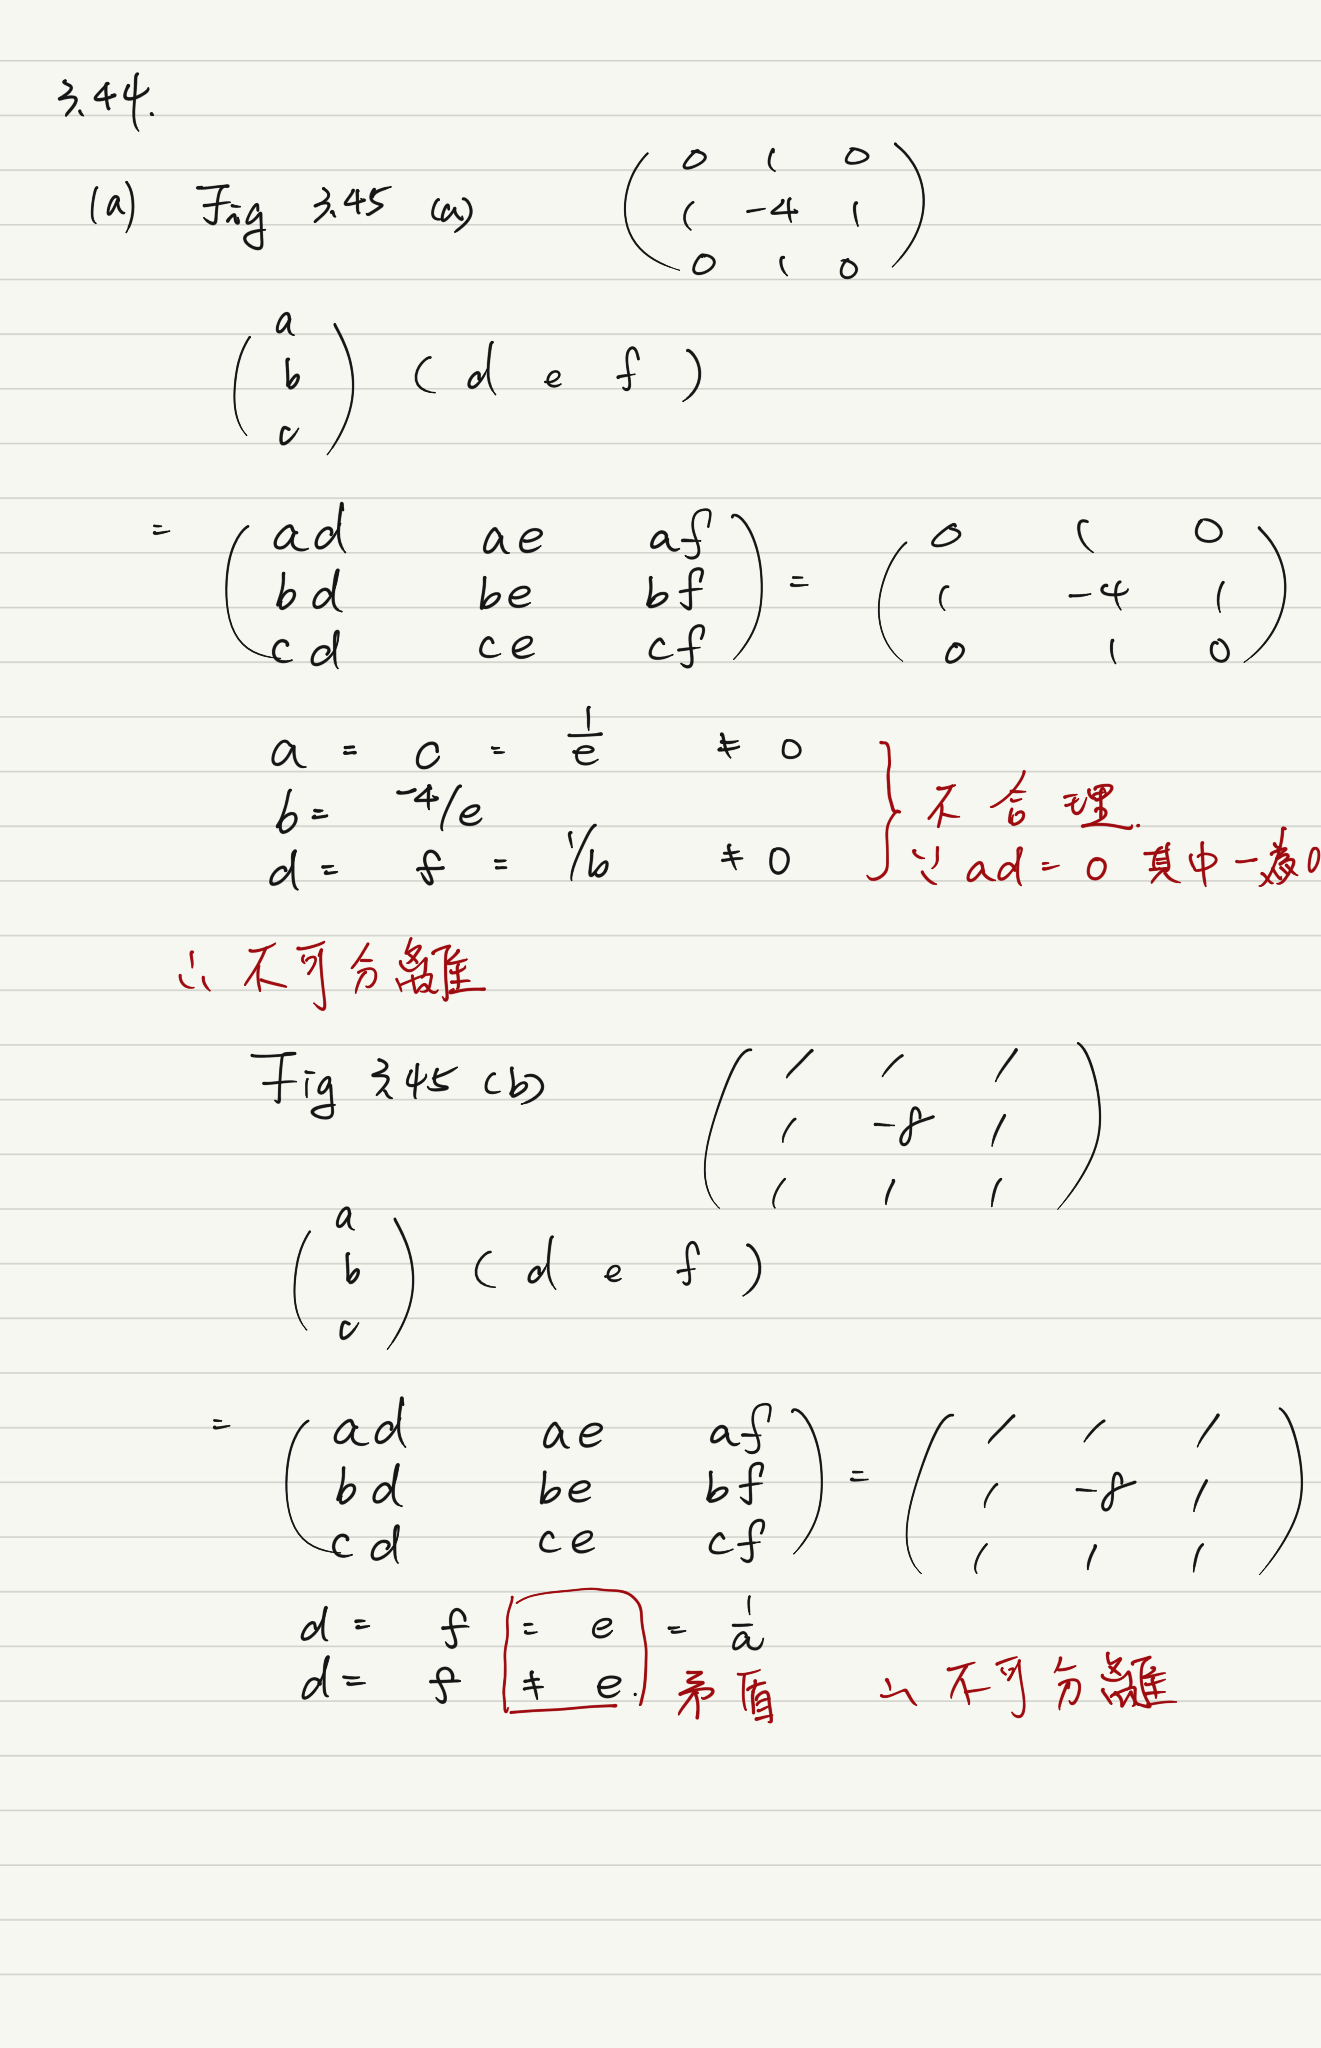 3.44.
(a) Fig 3.45 (a)
0 1 0
1 -4 1
0 1 0
a
b
c
( d e f )
= ( ad ae af
bd be bf
cd ce cf ) =
0 1 0
1 -4 1
0 1 0
a = c = 1/e ≠ 0
b = -4/e
d = f = 1/b ≠ 0
不合理.
∵ ad = 0 其中一為0
∴ 不可分離
Fig 3.45 (b)
1 1 1
1 -8 1
1 1 1
a
b
c
( d e f )
= ( ad ae af
bd be bf
cd ce cf ) =
1 1 1
1 -8 1
1 1 1
d = f = e = 1/a
d = f ≠ e. 矛盾 ∴ 不可分離